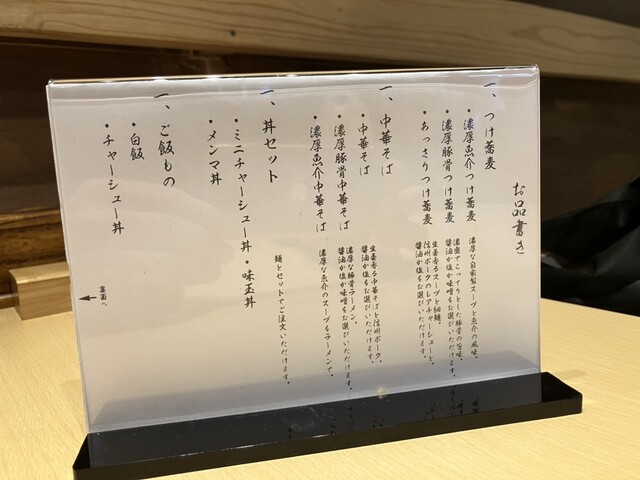 お品書き
一、つけ蕎麦
・濃厚魚介つけ蕎麦
濃厚な自家製スープと魚介の風味。
・濃厚豚骨つけ蕎麦
濃密でこってりとした豚骨の旨味。
醤油か塩か味噌をお選びいただけます。
・あっさりつけ蕎麦
生姜香るスープと細麺。
信州ポークのレアチャーシューと。
醤油か塩をお選びいただけます。
一、中華そば
・中華そば
生姜香る中華そばと信州ポーク。
醤油か塩をお選びいただけます。
・濃厚豚骨中華そば
濃厚な豚骨ラーメン。
醤油か塩か味噌をお選びいただけます。
・濃厚魚介中華そば
濃厚な魚介のスープをラーメンで。
一、丼セット
麺とセットでご注文いただけます。
・ミニチャーシュー丼・味玉丼
・メンマ丼
一、ご飯もの
・白飯
・チャーシュー丼
裏面へ